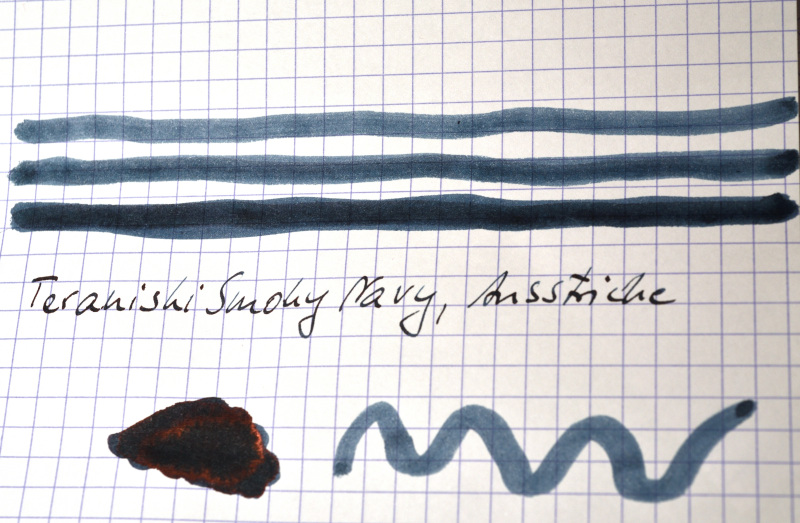 Teranishi Smoky Navy, Ausstriche